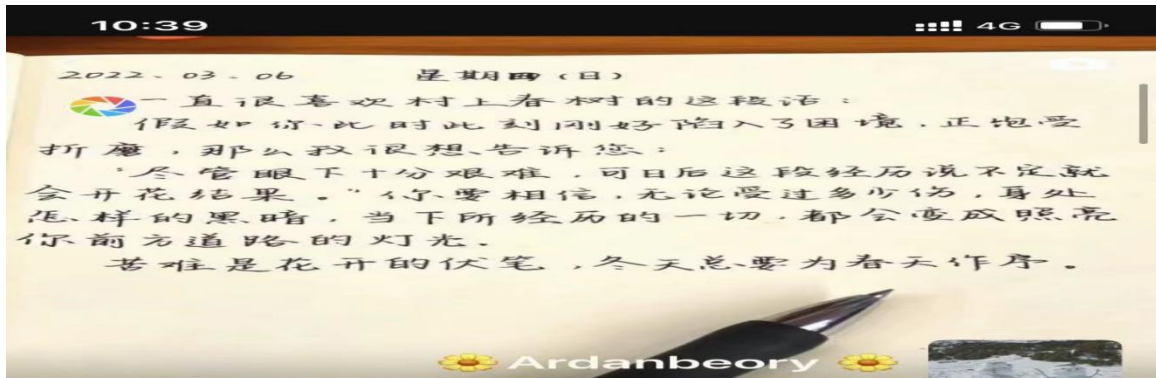 10:39
4G
2022、03、06 星期四（日）
一直很喜欢村上春树的这段话：
假如你此时此刻刚好陷入了困境，正饱受
折磨，那么我很想告诉您：
“尽管眼下十分艰难，可日后这段经历说不定就
会开花结果。”你要相信，无论受过多少伤，身处
怎样的黑暗，当下所经历的一切，都会变成照亮
你前方道路的灯光。
苦难是花开的伏笔，冬天总要为春天作序。
Ardanbeory